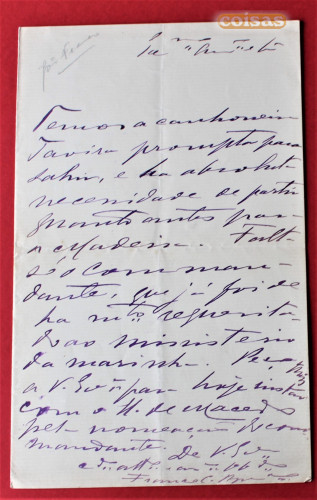 coisas
Temos a canhoneira
Tavira prompta para
sahir, e ha absoluta
necessidade de partir
quanto antes para
a Madeira. Falta
só o comman
dante, que já foi de
ha mto requerita
do ao ministerio
da marinha. Peço
a V. Exª para hoje instar
com o H. de Macedo
pela nomeação do com
mandante. De V. Exª